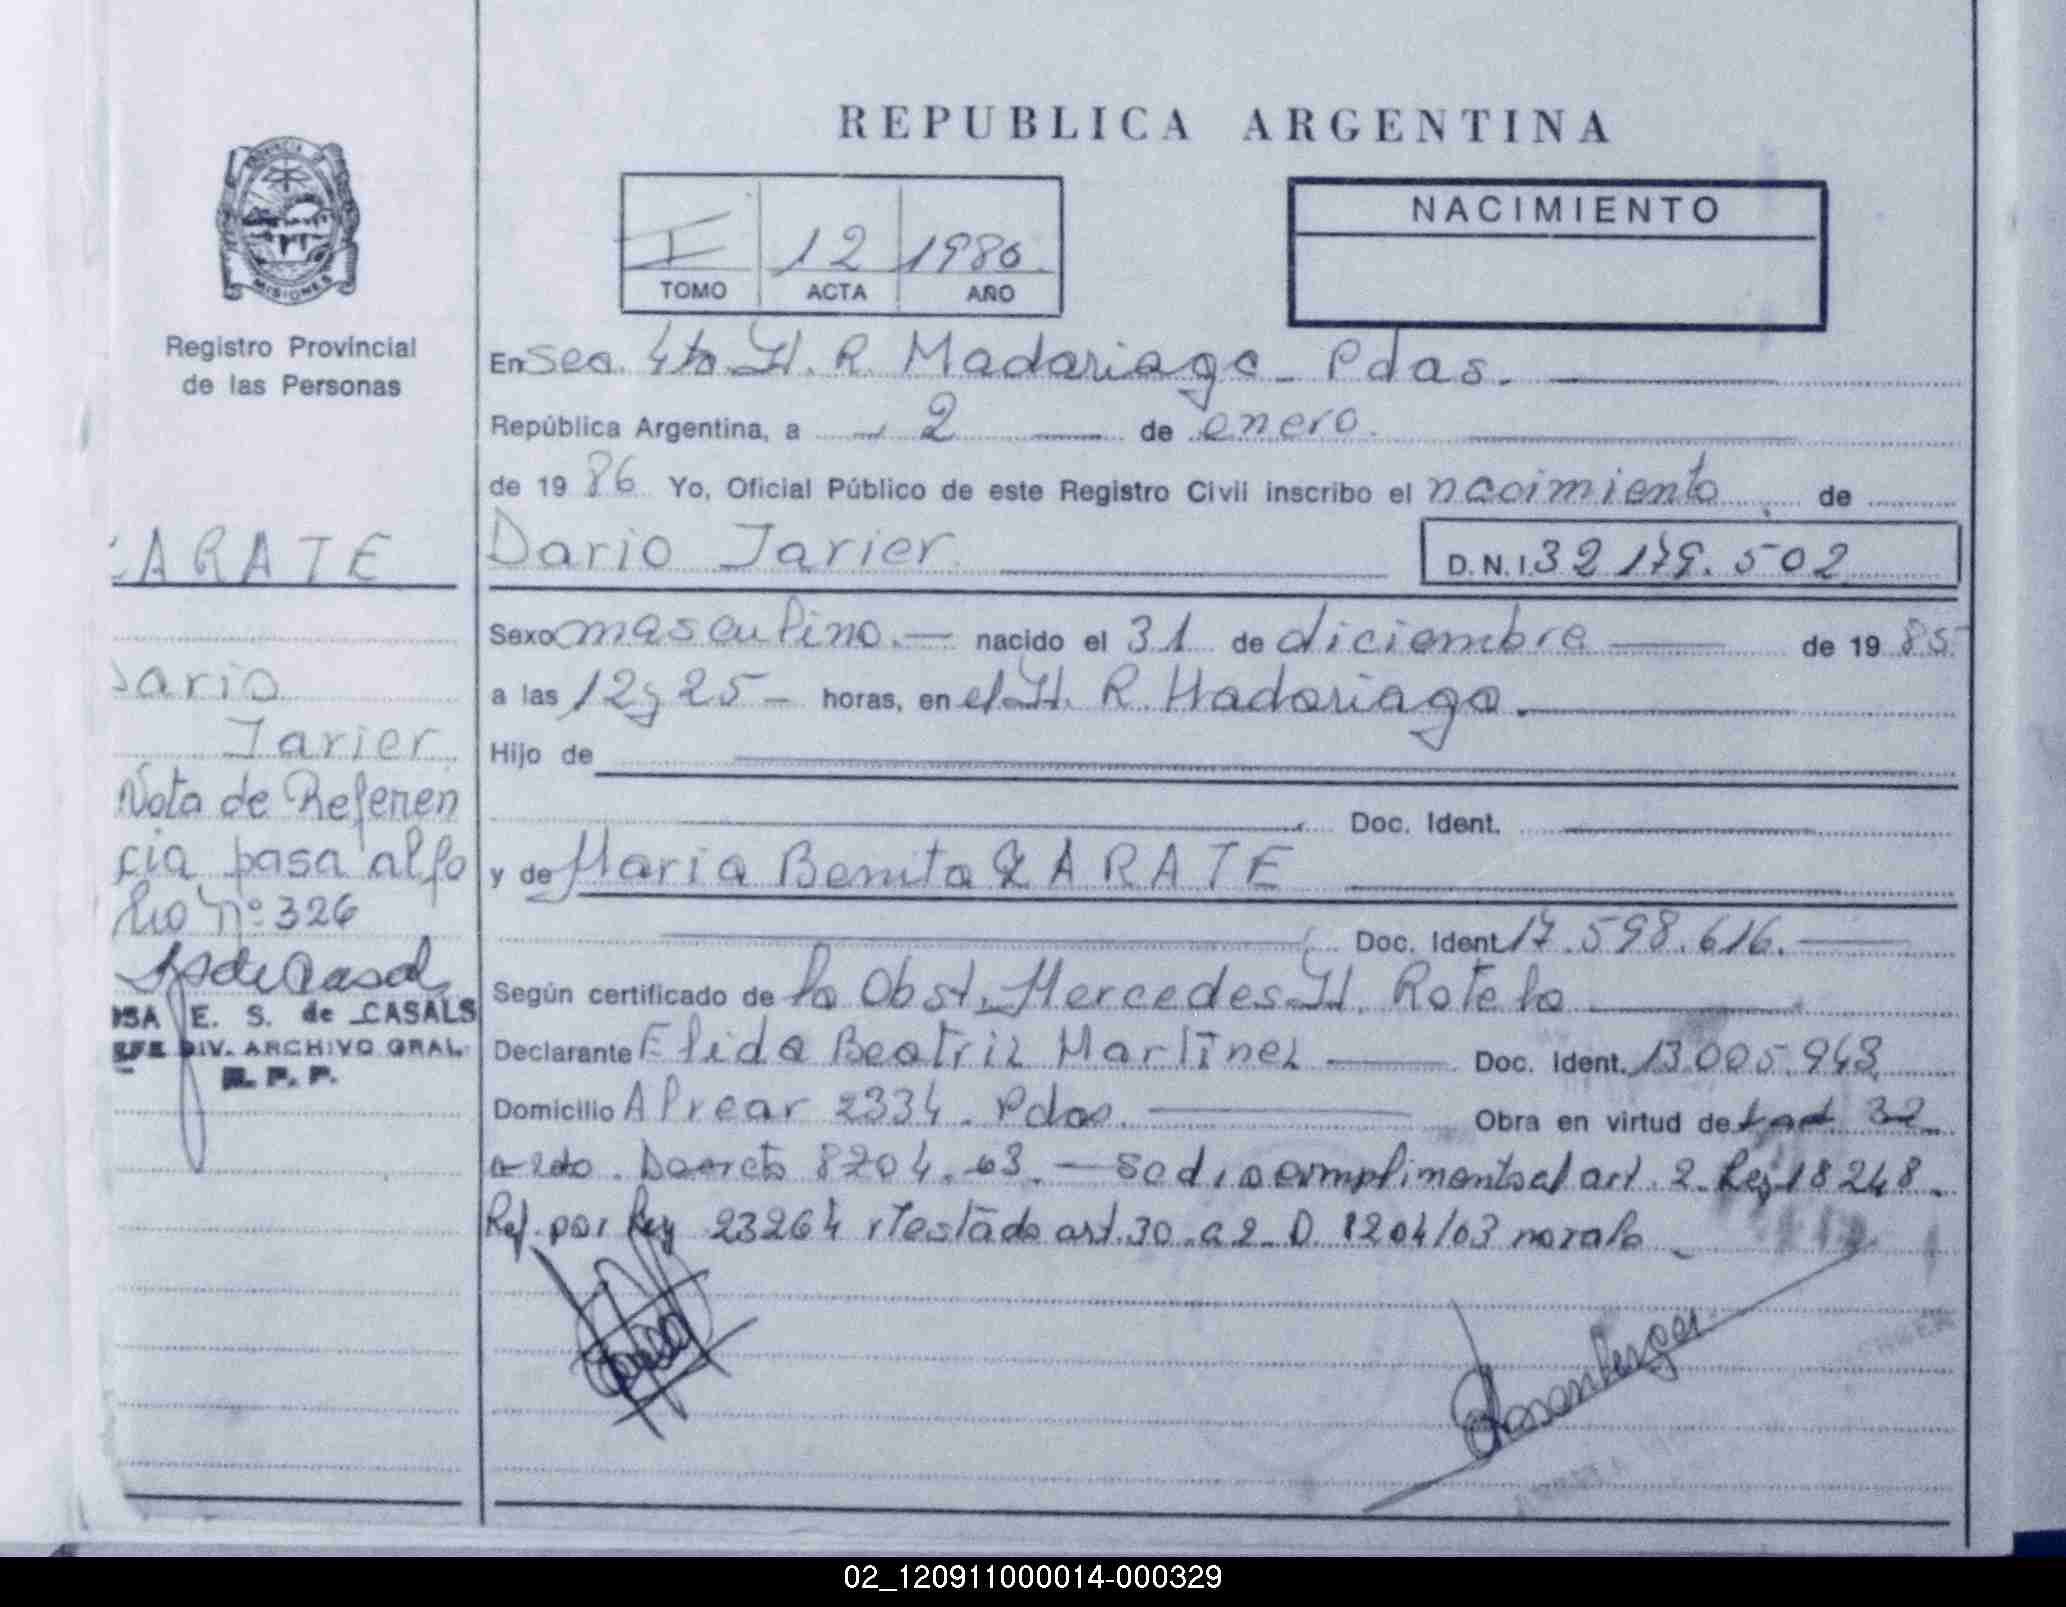 REPUBLICA ARGENTINA
PROVINCIA D MISIONES
Registro Provincial
de las Personas
I 12 1986
TOMO ACTA AÑO
NACIMIENTO
En Sec. 4ta H. R. Madariaga - Pdas.
República Argentina, a 2 de enero.
de 19 86 Yo, Oficial Público de este Registro Civil inscribo el nacimiento de
Dario Javier D.N.I. 32.179.502
Sexo masculino. nacido el 31 de diciembre de 19 85
a las 12 y 25 - horas, en el H. R. Madariaga.
Hijo de
Doc. Ident.
y de Maria Benita ZARATE
Doc. Ident. 17.598.616.
Según certificado de la Obst. Mercedes H. Rotela
Declarante Elida Beatriz Martinez Doc. Ident. 13.005.943
Domicilio Alvear 2334. Pdas. Obra en virtud de
Decreto 8204.63. - Se dio cumplimento al art. 2 Ley 18248.
Ref. por Ley 23264 Testado art. 30 a 2 D. 8204/63 no vale
ZARATE
Dario
Javier
Nota de Referen
cia pasa al fo
lio nº 326
E. S. de CASALS
DIV. ARCHIVO GRAL.
R. P. P.
02_120911000014-000329